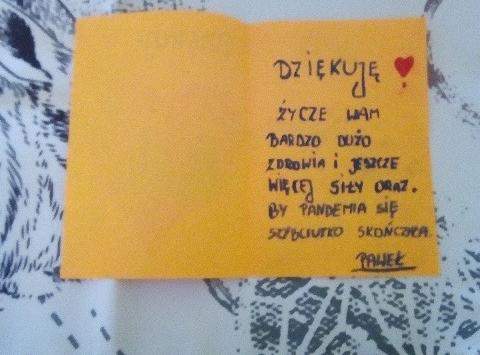 DZIĘKUJĘ
ŻYCZE WAM
BARDZO DUŻO
ZDROWIA i JESZCZE
WIĘCEJ SIŁY ORAZ.
BY PANDEMIA SIĘ
SZYBCIUTKO SKOŃCZYŁA.
PAWEŁ